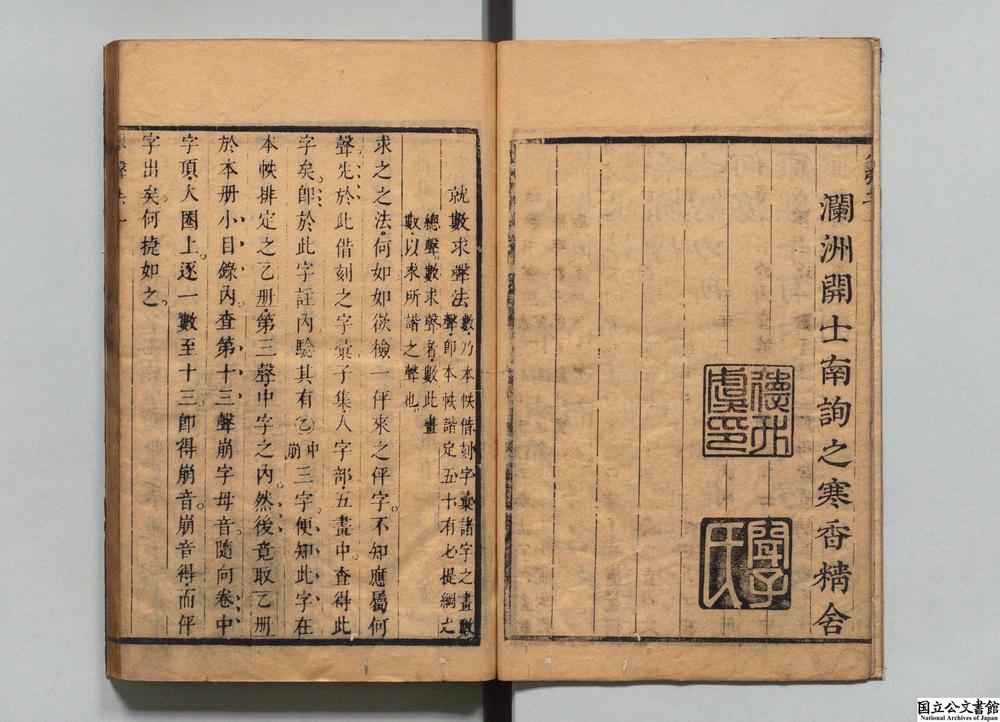 瀾洲開士南詢之寒香精舍
德升虞印
聞子氏
就數求聲法
數乃本帙借刻字彙諸字之畫數
聲卽本帙諧定五十有七提綱之
總聲數求聲者數此畫
數以求所諧之聲也
求之之法何如如欲檢一伻來之伻字不知應屬何
聲先於此借刻之字彙子集人字部五畫中查得此
字矣卽於此字註內驗其有乙中崩三字便知此字在
本帙排定之乙册第三聲中字之內然後竟取乙册
於本册小目錄內查第十三聲崩字母音隨向卷中
字頂大圈上逐一數至十三卽得崩音崩音得而伻
字出矣何捷如之
国立公文書館
National Archives of Japan